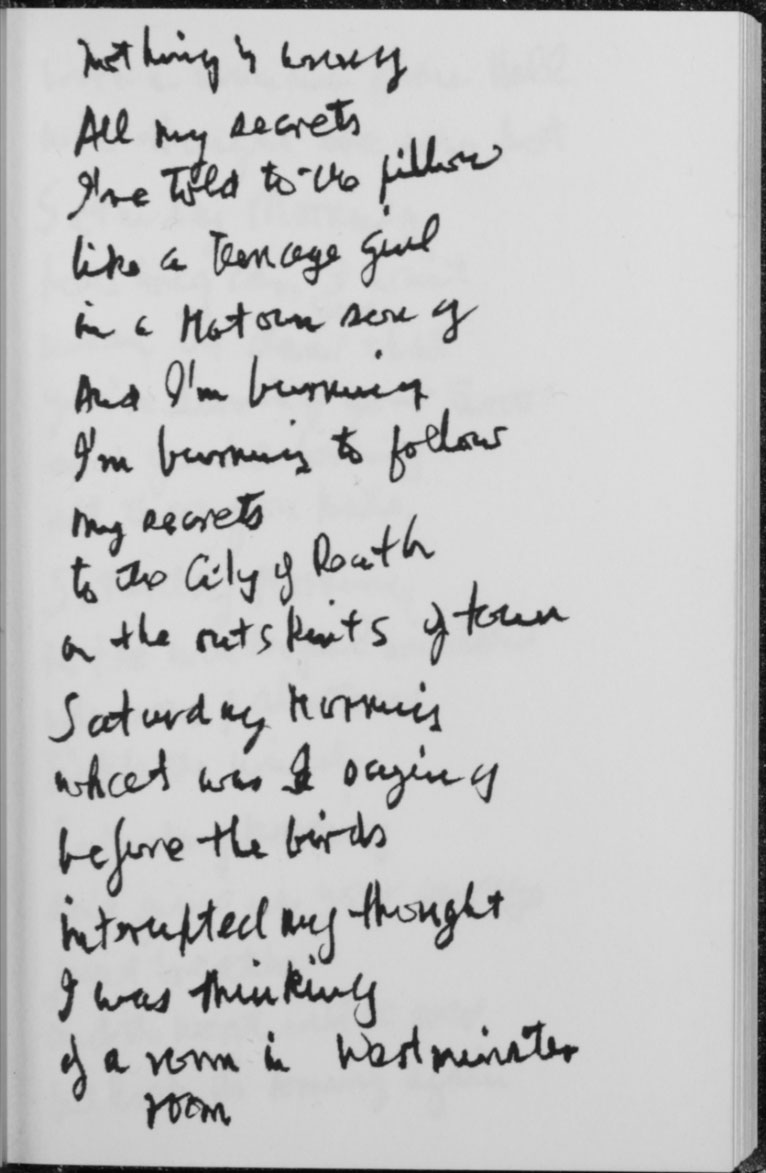 nothing is wrong
All my secrets
I've told to the pillow
like a teenage girl
in a Motown song
And I'm burning
I'm burning to follow
my secrets
to the City of Death
on the outskirts of town
Saturday Morning
what was I saying
before the birds
interrupted my thought
I was thinking
of a room in Westminster
room